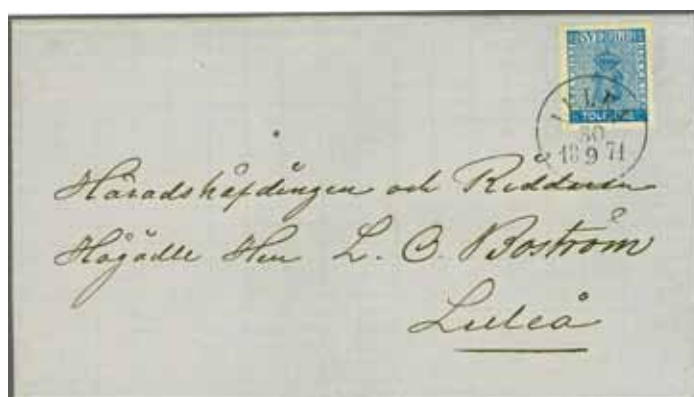 SVERIGE
TOLF ÖRE
30
18 9 71
Häradshöfdingen och Riddaren
Högädle Herr L. O. Boström
Luleå